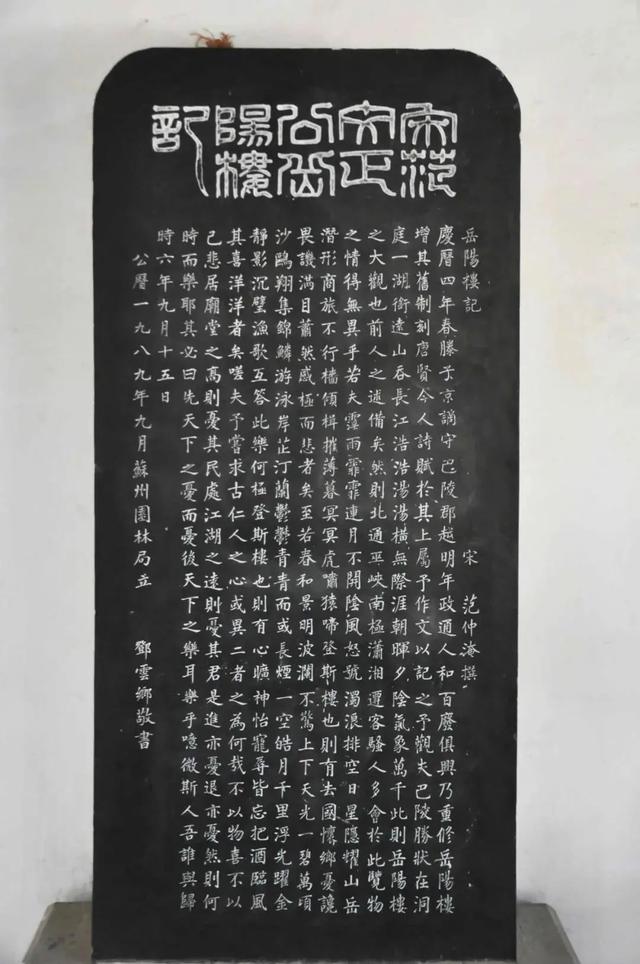 宋范文正公岳陽樓記
岳陽樓記 宋 范仲淹撰
慶曆四年春滕子京謫守巴陵郡越明年政通人和百廢俱興乃重修岳陽樓
增其舊制刻唐賢今人詩賦於其上屬予作文以記之予觀夫巴陵勝狀在洞
庭一湖銜遠山吞長江浩浩湯湯橫無際涯朝暉夕陰氣象萬千此則岳陽樓
之大觀也前人之述備矣然則北通巫峽南極瀟湘遷客騷人多會於此覽物
之情得無異乎若夫霪雨霏霏連月不開陰風怒號濁浪排空日星隱耀山岳
潛形商旅不行檣傾楫摧薄暮冥冥虎嘯猿啼登斯樓也則有去國懷鄉憂讒
畏譏滿目蕭然感極而悲者矣至若春和景明波瀾不驚上下天光一碧萬頃
沙鷗翔集錦鱗游泳岸芷汀蘭鬱鬱青青而或長煙一空皓月千里浮光躍金
靜影沉璧漁歌互答此樂何極登斯樓也則有心曠神怡寵辱皆忘把酒臨風
其喜洋洋者矣嗟夫予嘗求古仁人之心或異二者之為何哉不以物喜不以
己悲居廟堂之高則憂其民處江湖之遠則憂其君是進亦憂退亦憂然則何
時而樂耶其必曰先天下之憂而憂後天下之樂而樂乎噫微斯人吾誰與歸
時六年九月十五日
公曆一九八九年九月蘇州園林局立 鄧雲鄉敬書